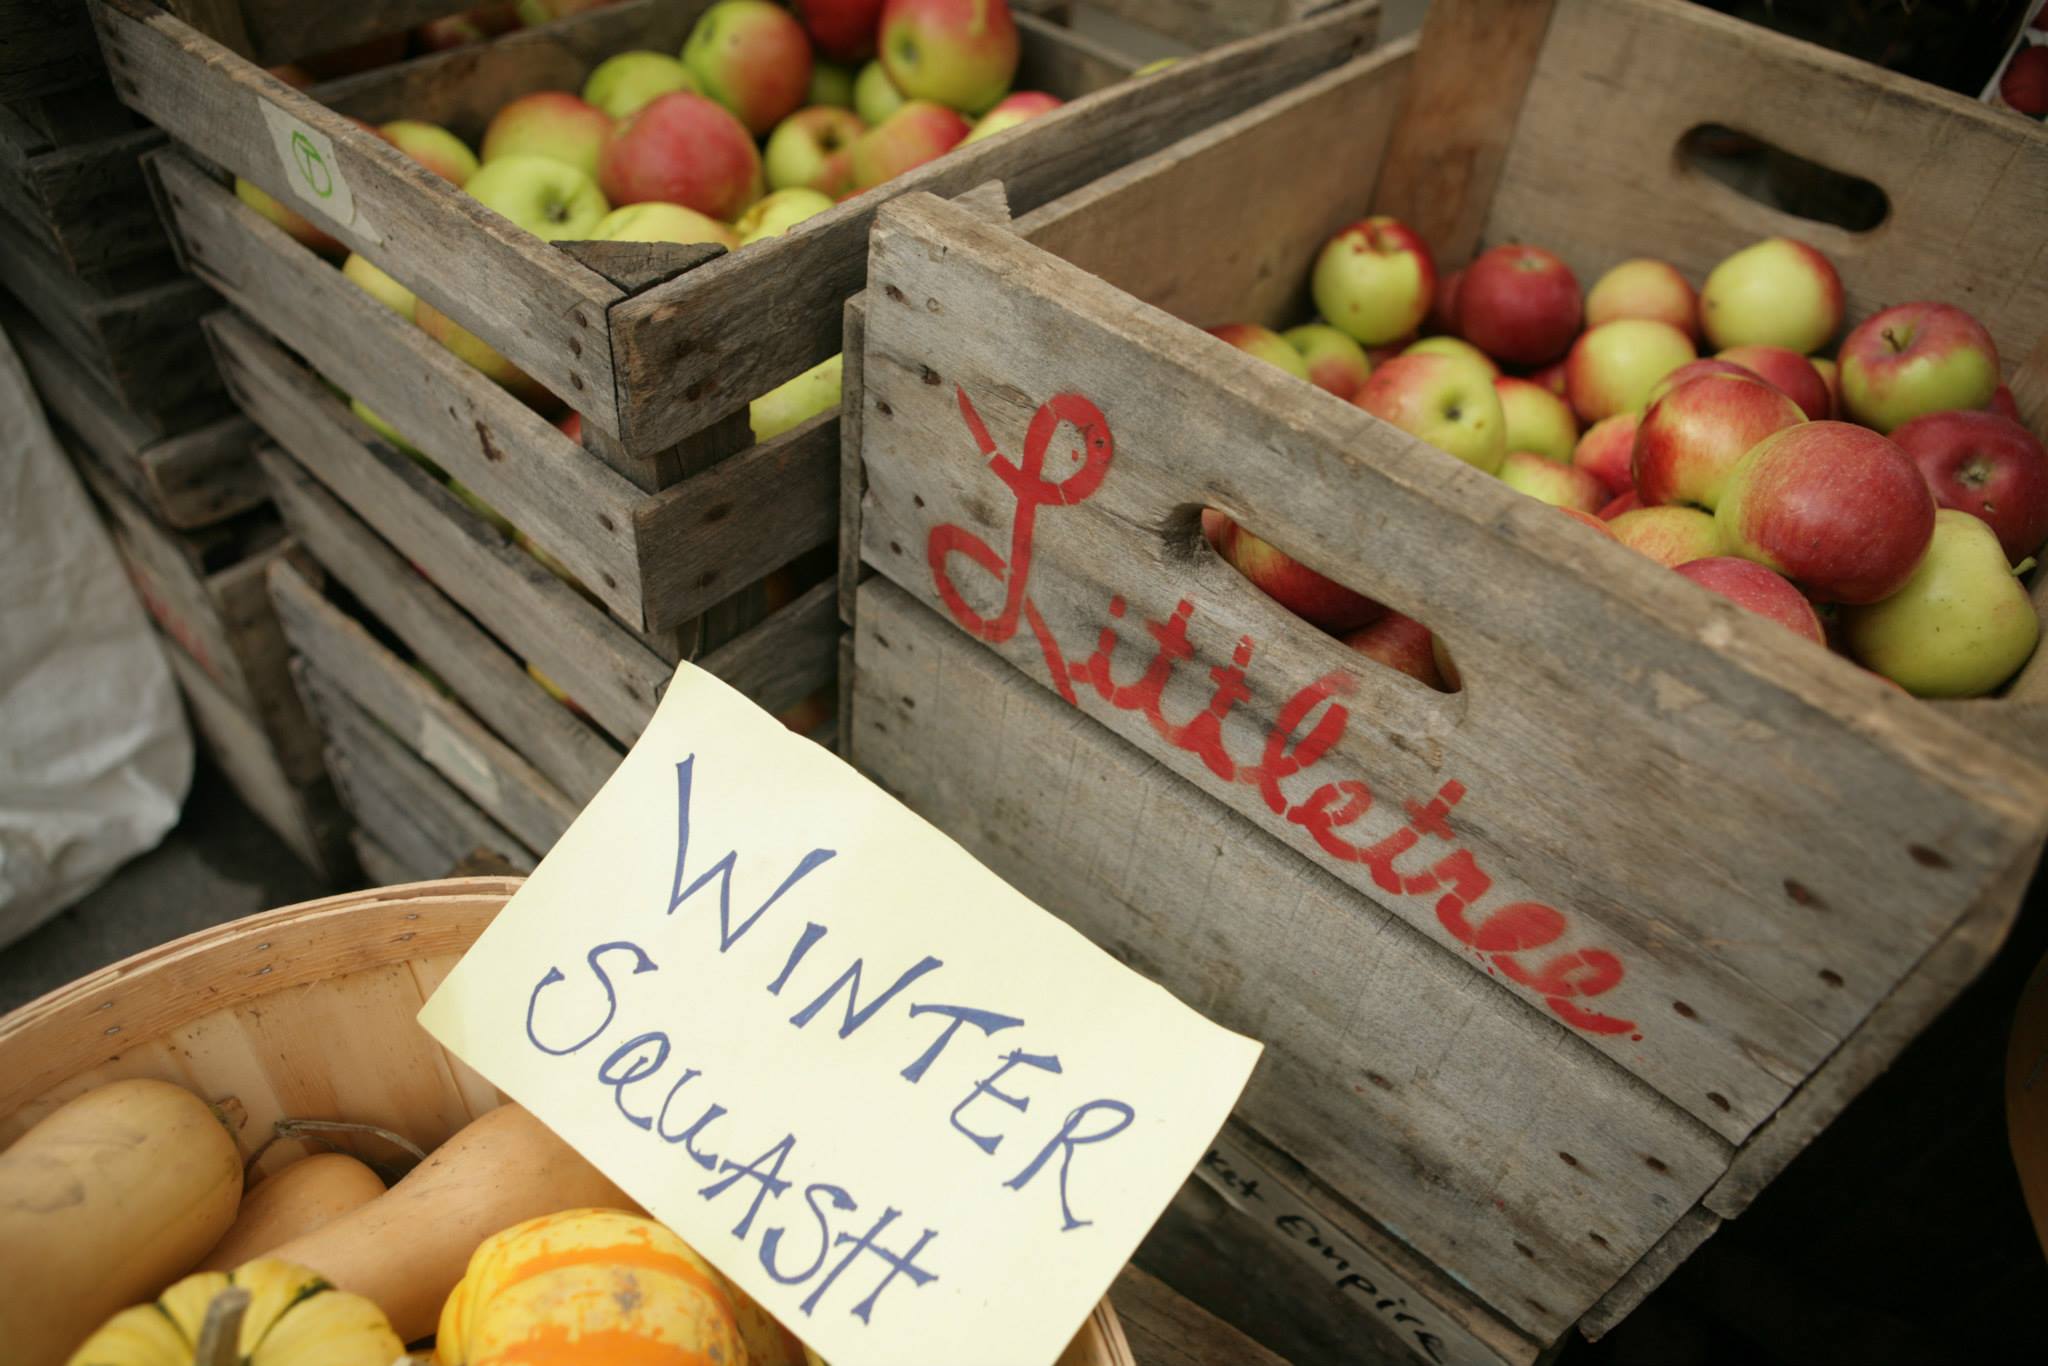 T
Littletree
WINTER
SQUASH
Empire